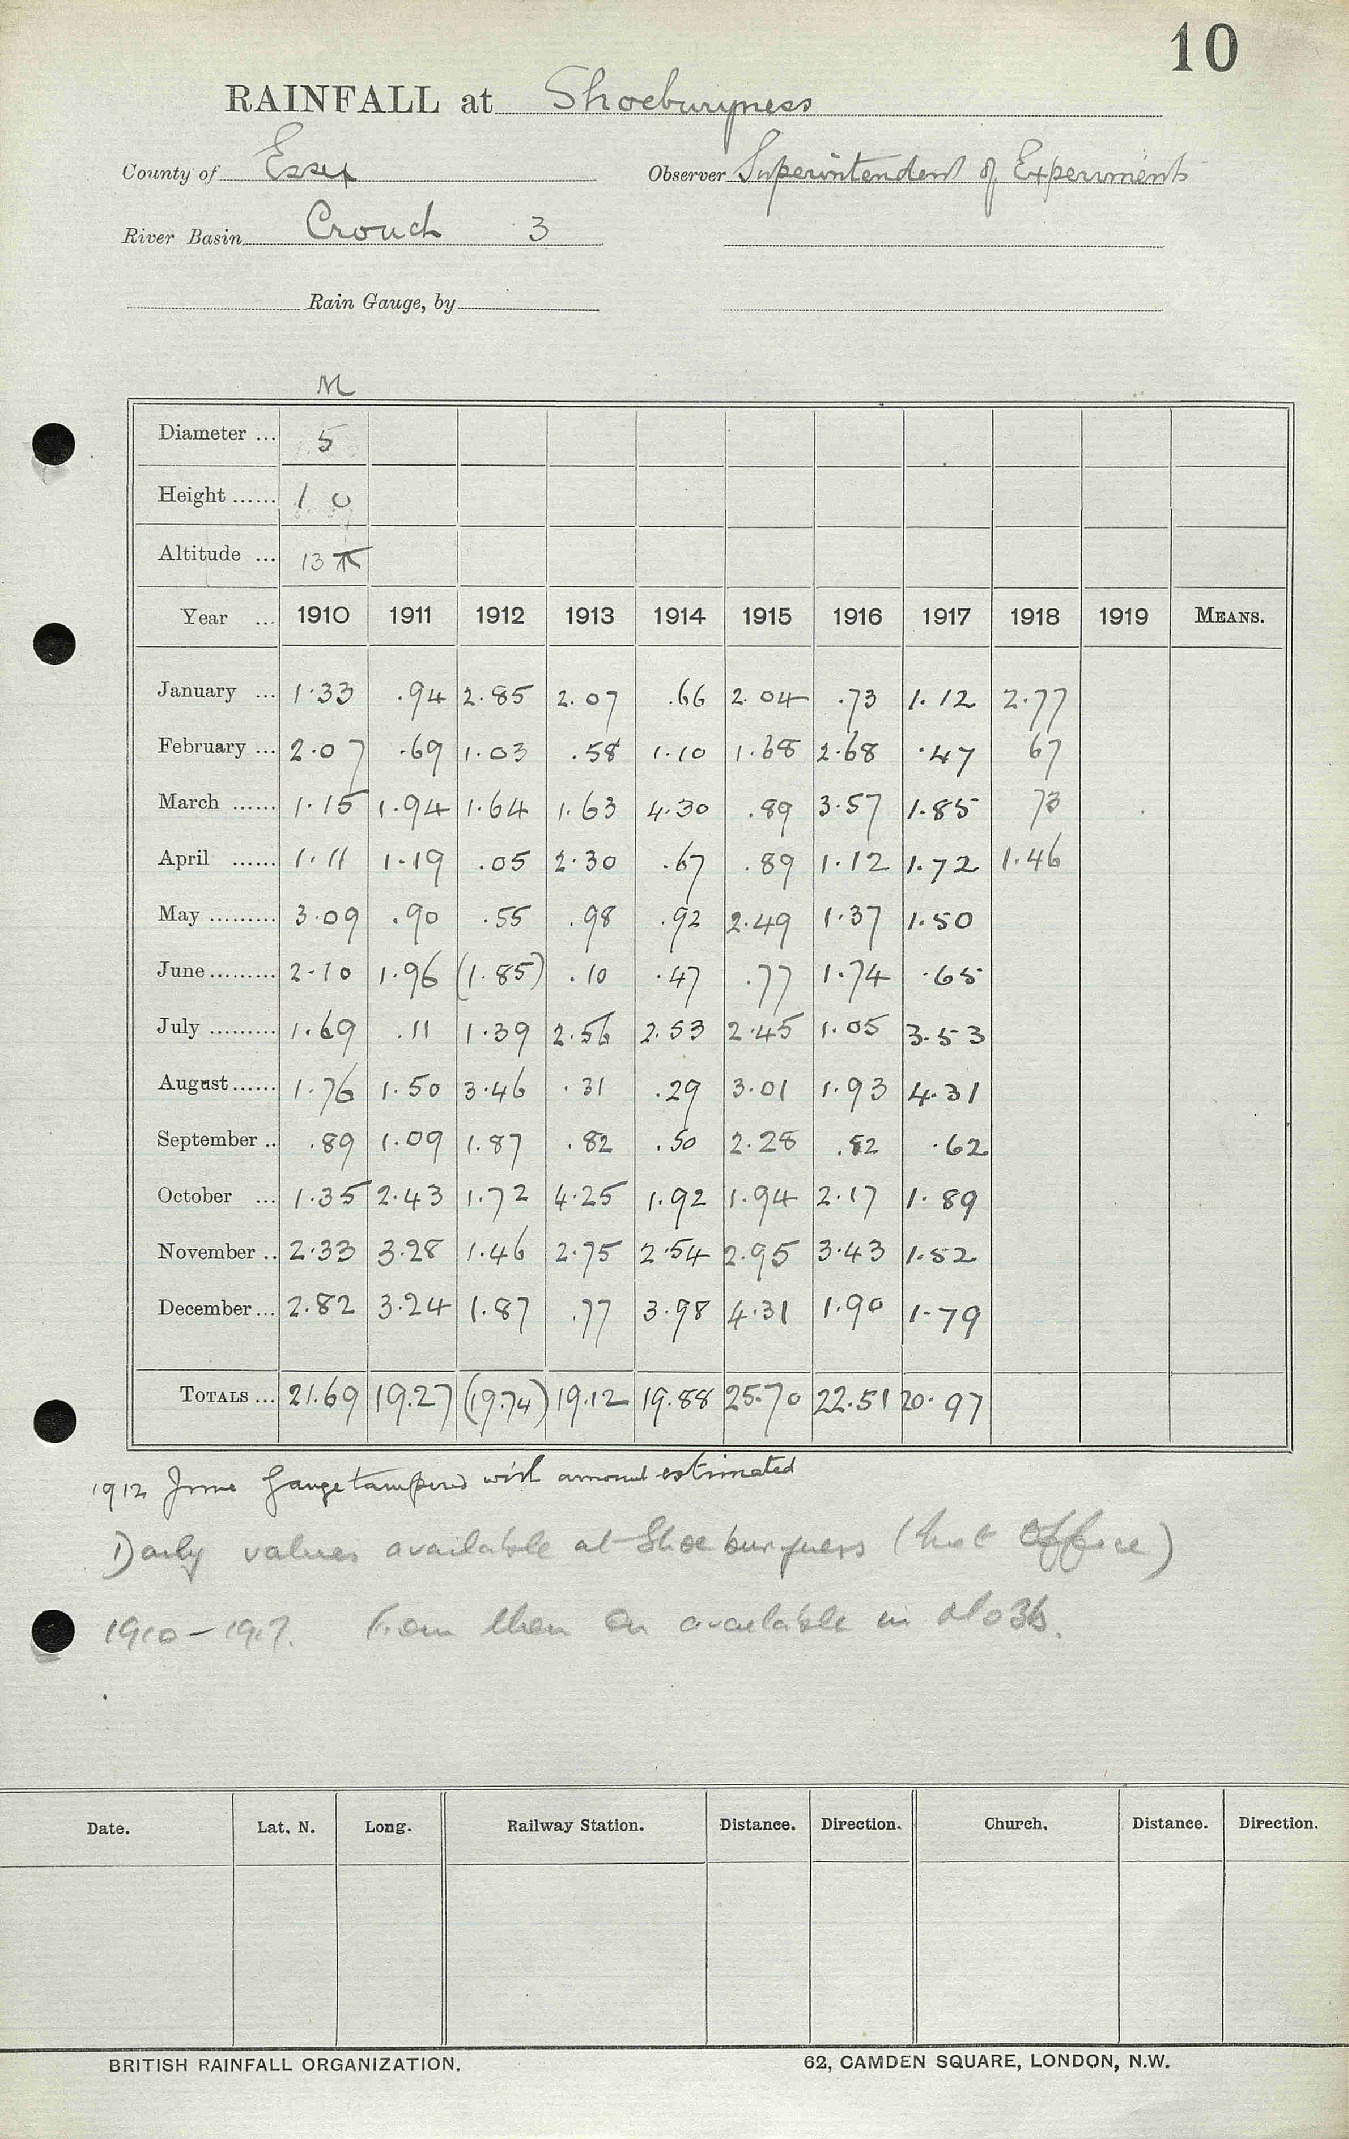 10
RAINFALL at Shoeburyness
County of Essex Observer Superintendent of Experiments
River Basin Crouch 3
Rain Gauge, by
M
Diameter ... 5
Height ...... 1 0
Altitude ... 13
Year ... 1910 1911 1912 1913 1914 1915 1916 1917 1918 1919 MEANS.
January ... 1.33 .94 2.85 2.07 .66 2.04 .73 1.12 2.77
February ... 2.07 .69 1.03 .58 1.10 1.68 2.68 .47 67
March ...... 1.15 1.94 1.64 1.63 4.30 .89 3.57 1.85 73
April ...... 1.11 1.19 .05 2.30 .67 .89 1.12 1.72 1.46
May ......... 3.09 .90 .55 .98 .92 2.49 1.37 1.50
June ......... 2.10 1.96 (1.85) .10 .47 .77 1.74 .65
July ......... 1.69 .11 1.39 2.56 2.53 2.45 1.05 3.53
August ...... 1.76 1.50 3.46 .31 .29 3.01 1.93 4.31
September .. .89 1.09 1.87 .82 .50 2.28 .82 .62
October ... 1.35 2.43 1.72 4.25 1.92 1.94 2.17 1.89
November .. 2.33 3.28 1.46 2.75 2.54 2.95 3.43 1.52
December ... 2.82 3.24 1.87 .77 3.98 4.31 1.90 1.79
TOTALS ... 21.69 19.27 (19.74) 19.12 19.88 25.70 22.51 20.97
1912 June Gauge tampered with amount estimated
Daily values available at Shoeburyness (Met Office)
1910-1917. From then on available in M.O.
Date. Lat. N. Long. Railway Station. Distance. Direction. Church. Distance. Direction.
BRITISH RAINFALL ORGANIZATION. 62, CAMDEN SQUARE, LONDON, N.W.